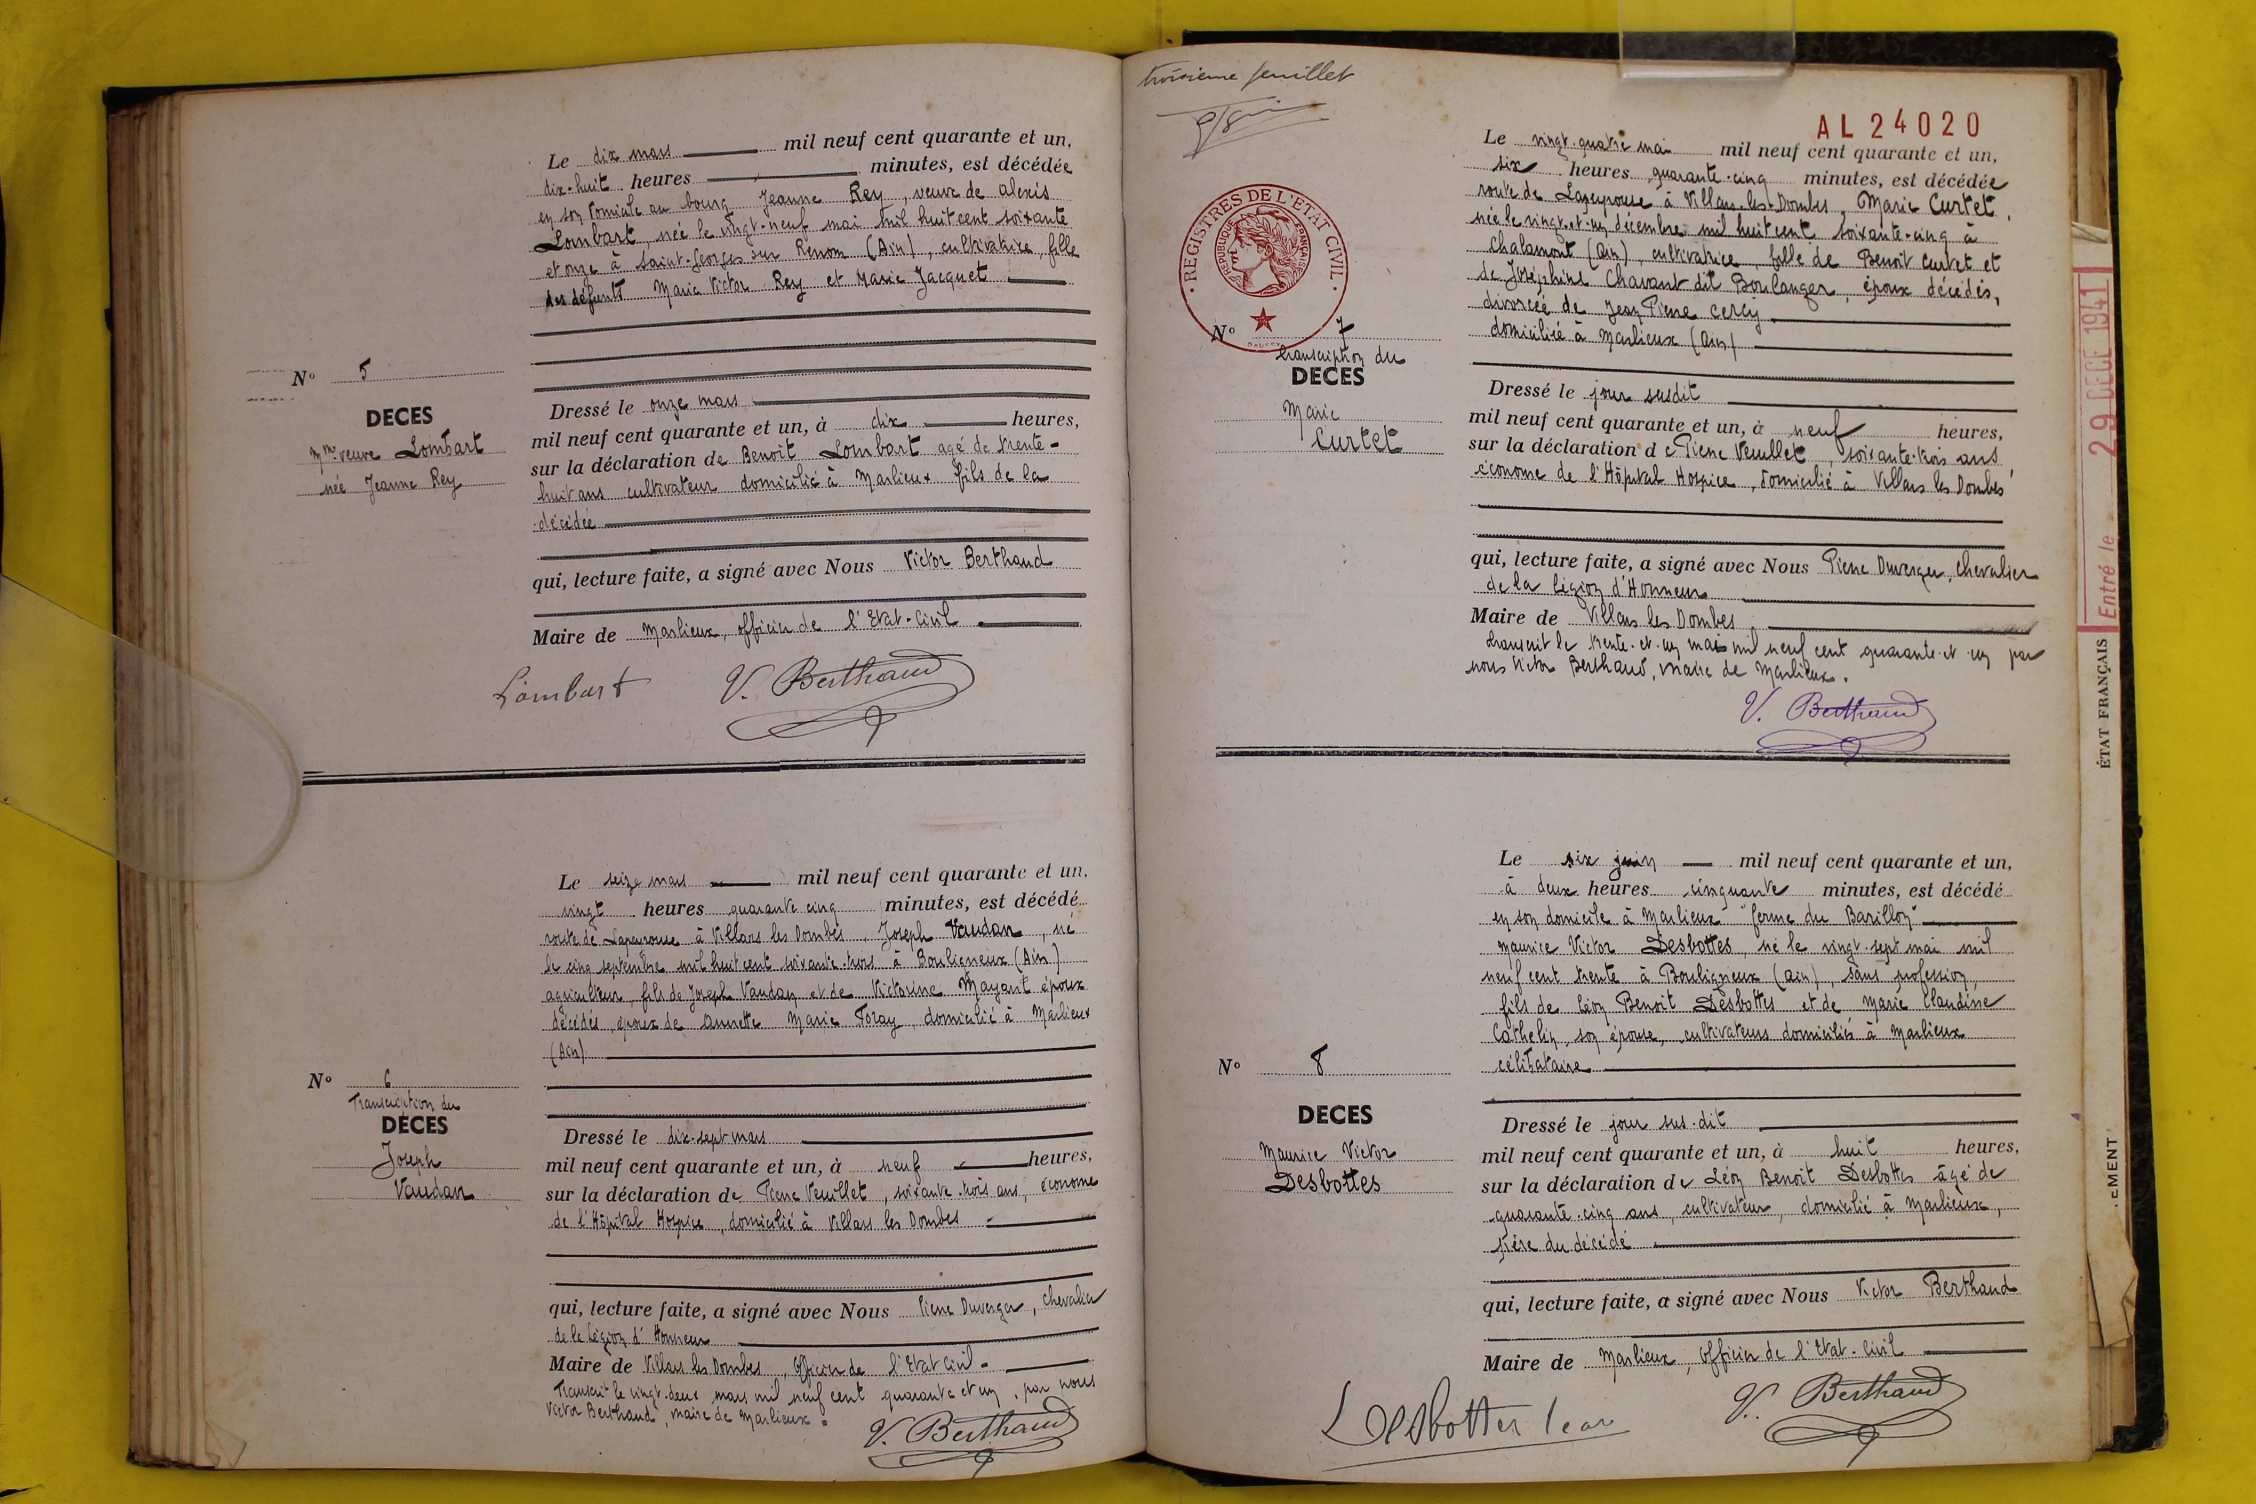 Le dix mars mil neuf cent quarante et un,
dix-huit heures minutes, est décédée
en son domicile au bourg Jeanne Rey, veuve de Alexis
Lombart, née le vingt-neuf mai mil huit cent soixante
et onze à Saint-Georges sur Renon (Ain), cultivatrice, fille
des défunts Marie Victor Rey et Marie Jacquet
N° 5
DECES
Mme veuve Lombart
née Jeanne Rey
Dressé le onze mars
mil neuf cent quarante et un, à dix heures,
sur la déclaration de Benoît Lombart agé de trente-
huit ans cultivateur domicilié à Marlieux fils de la
décédée
qui, lecture faite, a signé avec Nous Victor Berthaud
Maire de Marlieux, officier de l'Etat-Civil
Lombart V. Berthaud
Le seize mars mil neuf cent quarante et un,
vingt heures quarante cinq minutes, est décédé
route de Lapeyrouse à Villars les Dombes, Joseph Vaudan, né
le cinq septembre mil huit cent soixante-trois à Bouligneux (Ain)
agriculteur, fils de Joseph Vaudan et de Victorine Mayant époux
décédés, époux de Annette Marie Foray, domicilié à Marlieux
(Ain)
N° 6
Transcription du
DECES
Joseph
Vaudan
Dressé le dix-sept mars
mil neuf cent quarante et un, à neuf heures,
sur la déclaration de Pierre Veuillet, soixante-trois ans, économe
de l'Hôpital Hospice, domicilié à Villars les Dombes
qui, lecture faite, a signé avec Nous Pierre Duverger, chevalier
de la Légion d'Honneur
Maire de Villars les Dombes, Officier de l'Etat Civil
Transcrit le vingt-deux mars mil neuf cent quarante et un, par nous
Victor Berthaud, maire de Marlieux.
V. Berthaud
troisième feuillet
AL 24020
REGISTRES DE L'ETAT CIVIL
REPUBLIQUE FRANÇAISE
Le vingt-quatre mai mil neuf cent quarante et un,
six heures quarante-cinq minutes, est décédée
route de Lapeyrouse à Villars-les-Dombes Marie Curtet,
née le vingt-et-un décembre mil huit cent soixante-cinq à
Chalamont (Ain), cultivatrice, fille de Benoît Curtet et
de Joséphine Chavant dit Boulanger, époux décédés,
divorcée de Jean Pierre Cercy
domiciliée à Marlieux (Ain)
N° 7
transcription du
DECES
Marie
Curtet
Dressé le jour susdit
mil neuf cent quarante et un, à neuf heures,
sur la déclaration de Pierre Veuillet, soixante-trois ans,
économe de l'Hôpital Hospice, domicilié à Villars les Dombes
qui, lecture faite, a signé avec Nous Pierre Duverger, chevalier
de la Légion d'Honneur
Maire de Villars les Dombes
transcrit le trente-et-un mai mil neuf cent quarante-et-un par
nous Victor Berthaud, maire de Marlieux.
V. Berthaud
Le six juin mil neuf cent quarante et un,
à deux heures cinquante minutes, est décédé
en son domicile à Marlieux "ferme du Barillon"
Maurice Victor Desbottes, né le vingt-sept mai mil
neuf cent trente à Bouligneux (Ain), sans profession,
fils de Léon Benoît Desbottes et de Marie Claudine
Cathelin, son épouse, cultivateurs domiciliés à Marlieux
célibataire
N° 8
DECES
Maurice Victor
Desbottes
Dressé le jour sus-dit
mil neuf cent quarante et un, à huit heures,
sur la déclaration de Léon Benoît Desbottes âgé de
quarante-cinq ans, cultivateur, domicilié à Marlieux,
père du décédé
qui, lecture faite, a signé avec Nous Victor Berthaud
Maire de Marlieux, officier de l'Etat-Civil
Desbottes leon V. Berthaud
Entré le 29 DECE 1941
ÉTAT FRANÇAIS